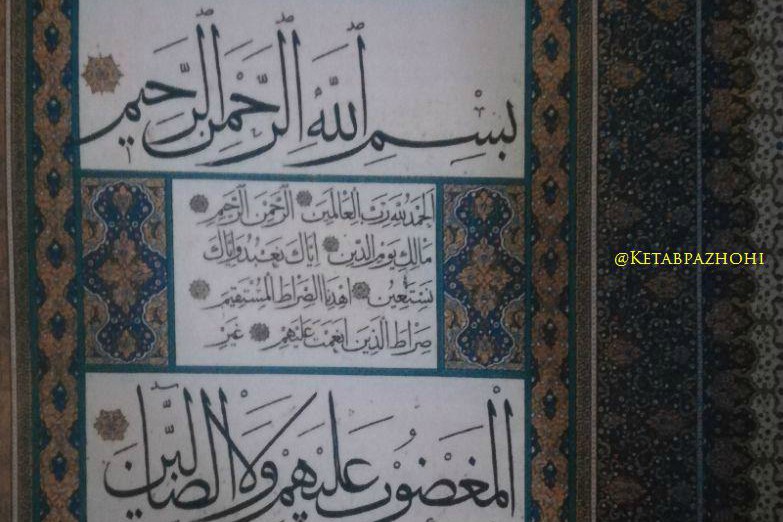 بِسْمِ اللَّهِ الرَّحْمَنِ الرَّحِيمِ
اَلْحَمْدُ لِلَّهِ رَبِّ الْعَالَمِينَ الرَّحْمَنِ الرَّحِيمِ
مَالِكِ يَوْمِ الدِّينِ اِيَّاكَ نَعْبُدُ وَاِيَّاكَ
نَسْتَعِينُ اِهْدِنَا الصِّرَاطَ الْمُسْتَقِيمَ
صِرَاطَ الَّذِينَ اَنْعَمْتَ عَلَيْهِمْ غَيْرِ
الْمَغْضُوبِ عَلَيْهِمْ وَلَا الضَّالِّينَ
@KETABPAZHOHI